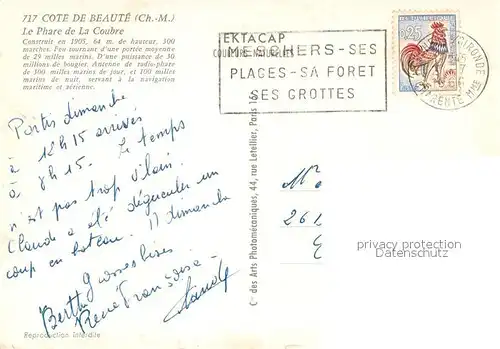 717 COTE DE BEAUTÉ (Ch.-M.)
Le Phare de La Coubre
Construit en 1905, 64 m. de hauteur, 300
marches. Feu tournant d'une portée moyenne
de 29 milles marins. D'une puissance de 30
millions de bougies. Antenne de radio-phare
de 300 milles marins de jour, et 100 milles
marins de nuit, servant à la navigation
maritime et aérienne.
EKTACAP
COULEURS NATURELLES
MESCHERS-SES
PLAGES-SA FORET
SES GROTTES
0,25
GIRONDE
RENTE MME
Partis dimanche
à 12h15 arrivés
à 8h15. Le temps
n'est pas trop vilain.
Claude a été dégueuler un
coup en bateau. dimanche
Grosses bises.
Berthe
René Françoise
Claude
Cie des Arts Photomécaniques, 44, rue Letellier, Paris 15
privacy protection
Datenschutz
Reproduction Interdite